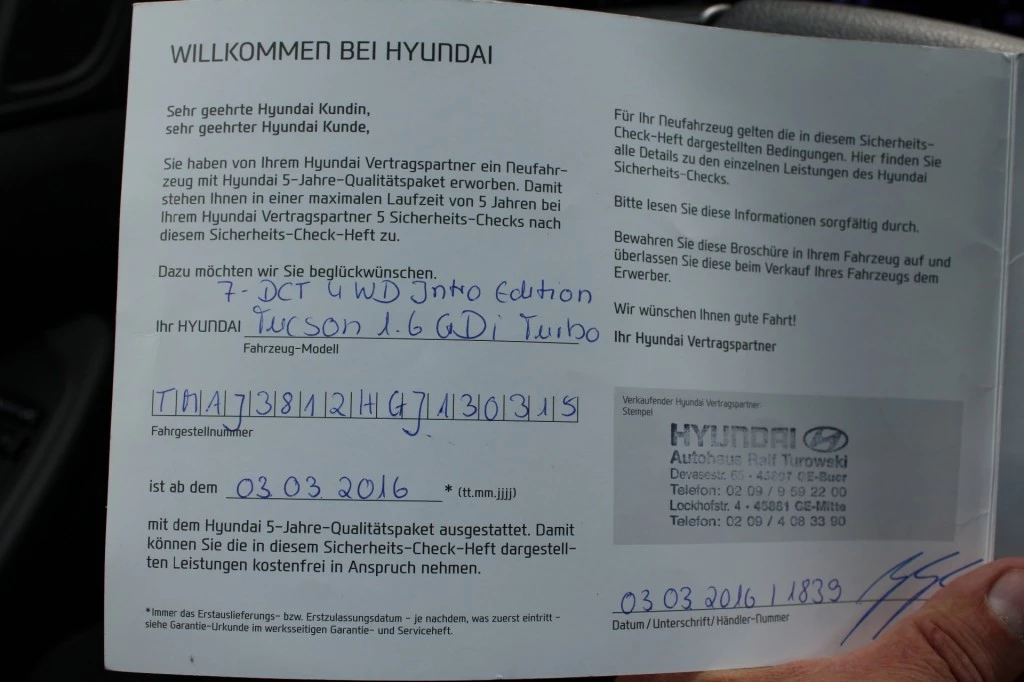 WILLKOMMEN BEI HYUNDAI
Sehr geehrte Hyundai Kundin,
sehr geehrter Hyundai Kunde,
Sie haben von Ihrem Hyundai Vertragspartner ein Neufahr-
zeug mit Hyundai 5-Jahre-Qualitätspaket erworben. Damit
stehen Ihnen in einer maximalen Laufzeit von 5 Jahren bei
Ihrem Hyundai Vertragspartner 5 Sicherheits-Checks nach
diesem Sicherheits-Check-Heft zu.
Dazu möchten wir Sie beglückwünschen.
7-DCT 4WD Intro Edition
Ihr HYUNDAI Tucson 1.6 GDi Turbo
Fahrzeug-Modell
TMAJ3812HGJ130315
Fahrgestellnummer
ist ab dem 03 03 2016 * (tt.mm.jjjj)
mit dem Hyundai 5-Jahre-Qualitätspaket ausgestattet. Damit
können Sie die in diesem Sicherheits-Check-Heft dargestell-
ten Leistungen kostenfrei in Anspruch nehmen.
*Immer das Erstauslieferungs- bzw. Erstzulassungsdatum - je nachdem, was zuerst eintritt -
siehe Garantie-Urkunde im werksseitigen Garantie- und Serviceheft.
Für Ihr Neufahrzeug gelten die in diesem Sicherheits-
Check-Heft dargestellten Bedingungen. Hier finden Sie
alle Details zu den einzelnen Leistungen des Hyundai
Sicherheits-Checks.
Bitte lesen Sie diese Informationen sorgfältig durch.
Bewahren Sie diese Broschüre in Ihrem Fahrzeug auf und
überlassen Sie diese beim Verkauf Ihres Fahrzeugs dem
Erwerber.
Wir wünschen Ihnen gute Fahrt!
Ihr Hyundai Vertragspartner
Verkaufender Hyundai Vertragspartner:
Stempel
HYUNDAI
Autohaus Ralf Turowski
45897 GE-Buer
Telefon: 02 09 / 9 59 22 00
Lockhofstr. 4 - 45881 GE-Mitte
Telefon: 02 09 / 4 08 33 90
03 03 2016 | 1839
Datum / Unterschrift / Händler-Nummer